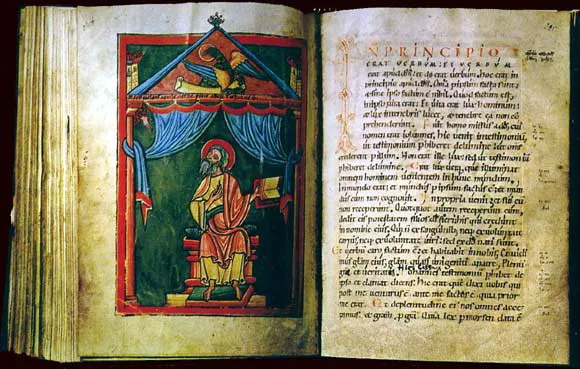 IN PRINCIPIO
ERAT UERBUM; ET UERBUM
erat apud dm̄; et ds̄ erat uerbum; hoc erat in
principio apud dm̄; Omnia p ipsum facta s̄;
& sine ipso factum ē nihil; Quod factum est;
in ipso uita erat; Et uita erat lux hominum;
& lux in tenebris lucet, & tenebre eā non cō
prehenderunt; Fuit homo missus a dō, cui
nomen erat iohannes; Hic uenit in testimoniū
ut testimonium phiberet de lumine ut om̄s
crederent p illum; Non erat ille lux; sed ut testimoniū
phiberet de lumine; Erat lux uera, que illuminat
omnem hominem uenientem in hunc mundum;
In mundo erat; et mundus p ipsum factus ē; et mun
dus eum non cognouit; In propria uenit; et sui eum
non receperunt; Quotquot autem receperunt eum,
dedit eis potestatem filios di fieri; his qui credunt
in nomine eius, Qui n̄ ex sanguinib; neq; ex uoluntate
carnis, neq; ex uoluntate uiri; sed ex dō nati sunt;
Et uerbū caro factum ē; et habitauit in nobis; Et uidi
mus gloriā eius, gloriā quasi unigeniti a patre, plenū
et ueritatis; Iohannes testimoniū phibet de
ipso; et clamat dicens; Hic erat quē dixi uobis qui
post me uenturus ē, ante me factus ē; quia prior
me erat; Et de plenitudine ei nos omnes acce
pimus; et grām p grā; Quia lex p moysen data ē;